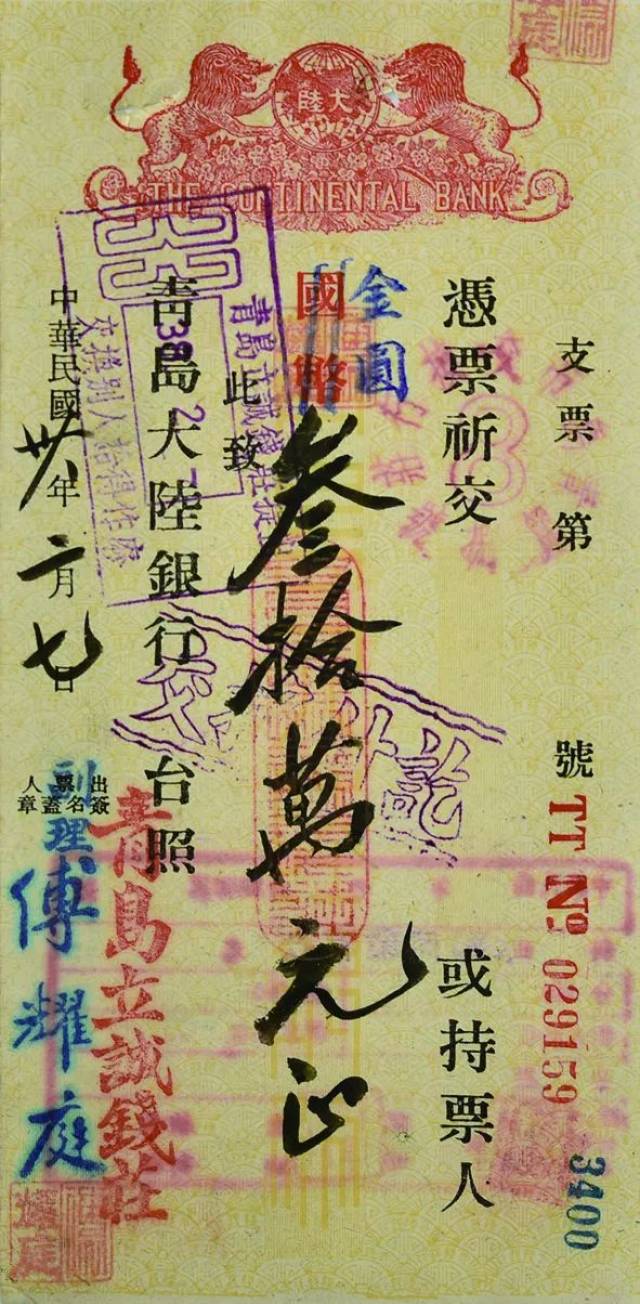 大陸
THE CONTINENTAL BANK
支票第 號 TT No 029159
3400
憑票祈交 或持票人
金圓
國幣叁拾萬元正
此致
青島大陸銀行 台照
中華民國卅八年二月七日
出票人簽名蓋章
青島立誠錢莊
副理
傅耀庭
38 2 7